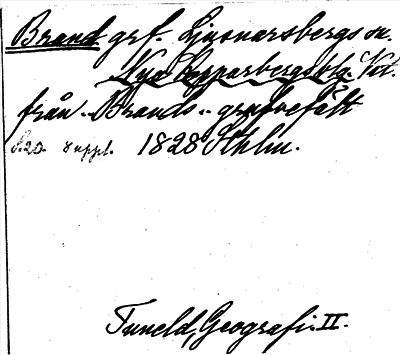 Brand grf. Ljusnarsbergs sn.
Nya Kopparbergs blg. Vst.
från "Brands" grufvefält
s. 20. suppl. 1828 Sthlm.
Tuneld, Geografi. II.